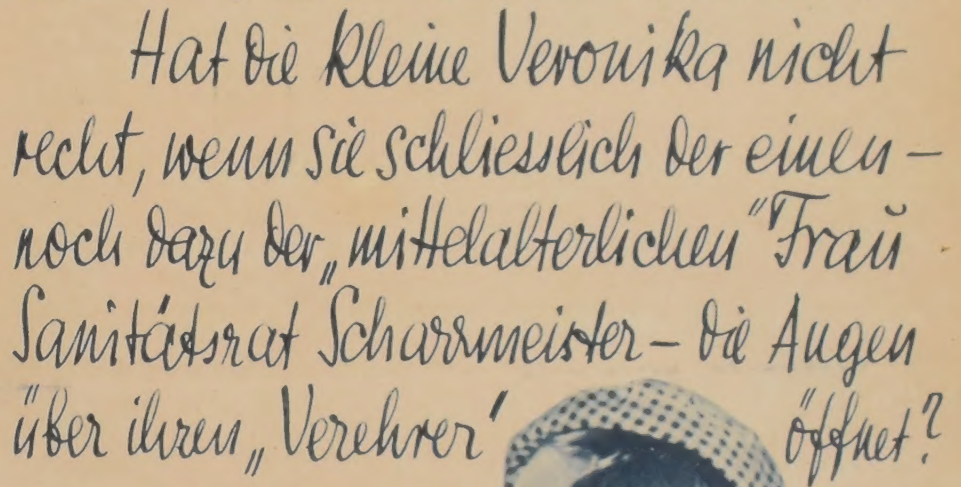 Hat die kleine Veronika nicht
recht, wenn sie schliesslich der einen –
noch dazu der „mittelalterlichen" Frau
Sanitätsrat Scharrmeister – die Augen
über ihren „Verehrer" öffnet?